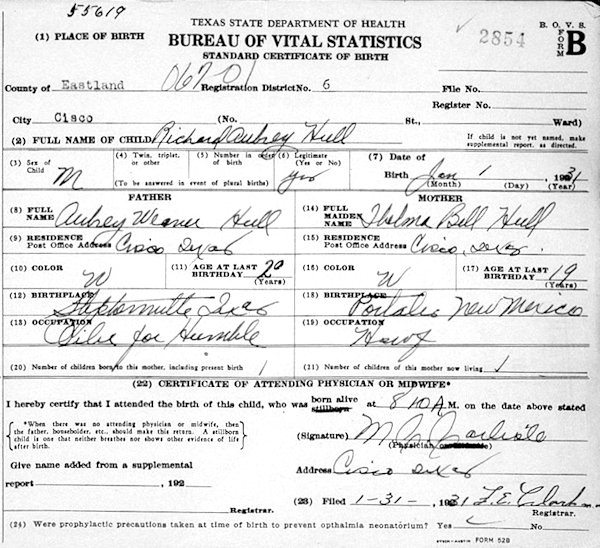 55619
TEXAS STATE DEPARTMENT OF HEALTH
B. O. V. S.
(1) PLACE OF BIRTH
BUREAU OF VITAL STATISTICS
2854
FORM B
STANDARD CERTIFICATE OF BIRTH
County of Eastland 06701 Registration District No. 6 File No.
Register No.
City Cisco (No. St., Ward)
(2) FULL NAME OF CHILD Richard Aubrey Hull
If child is not yet named, make supplemental report, as directed.
(3) Sex of Child M (4) Twin, triplet, or other (5) Number in order of birth (6) Legitimate (Yes or No) yes (7) Date of Birth Jan 1, 1931
(To be answered in event of plural births) (Month) (Day) (Year)
FATHER MOTHER
(8) FULL NAME Aubrey Weaver Hull (14) FULL MAIDEN NAME Thelma Bell Hull
(9) RESIDENCE Post Office Address Cisco Texas (15) RESIDENCE Post Office Address Cisco, Texas.
(10) COLOR W (11) AGE AT LAST BIRTHDAY 20 (Years) (16) COLOR W (17) AGE AT LAST BIRTHDAY 19 (Years)
(12) BIRTHPLACE Texas (18) BIRTHPLACE Portales New Mexico
(13) OCCUPATION for Humble (19) OCCUPATION Hswf
(20) Number of children born to this mother, including present birth 1 (21) Number of children of this mother now living 1
(22) CERTIFICATE OF ATTENDING PHYSICIAN OR MIDWIFE*
I hereby certify that I attended the birth of this child, who was born alive stillborn at 8 10 A.M. on the date above stated
*When there was no attending physician or midwife, then the father, householder, etc., should make this return. A stillborn child is one that neither breathes nor shows other evidence of life after birth.
(Signature) M.
(Physician or Midwife)
Give name added from a supplemental
Address Cisco Texas
report , 192
(23) Filed 1-31-, 1931 L. E. Clark
Registrar. Registrar.
(24) Were prophylactic precautions taken at time of birth to prevent opthalmia neonatorium? Yes ✓ No
FORM 52B